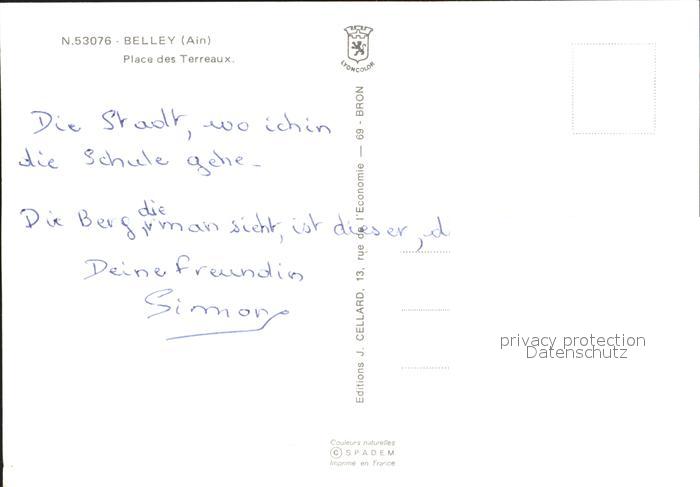 N.53076 - BELLEY (Ain)
Place des Terreaux.
LYONCOLOR
Die Stadt, wo ich in
die Schule gehe -
Die Berg, die man sieht, ist dieser, d
Deine Freundin
Simone
Editions J. CELLARD, 13, rue de l'Economie — 69 - BRON
privacy protection
Datenschutz
Couleurs naturelles
© SPADEM
Imprimé en France